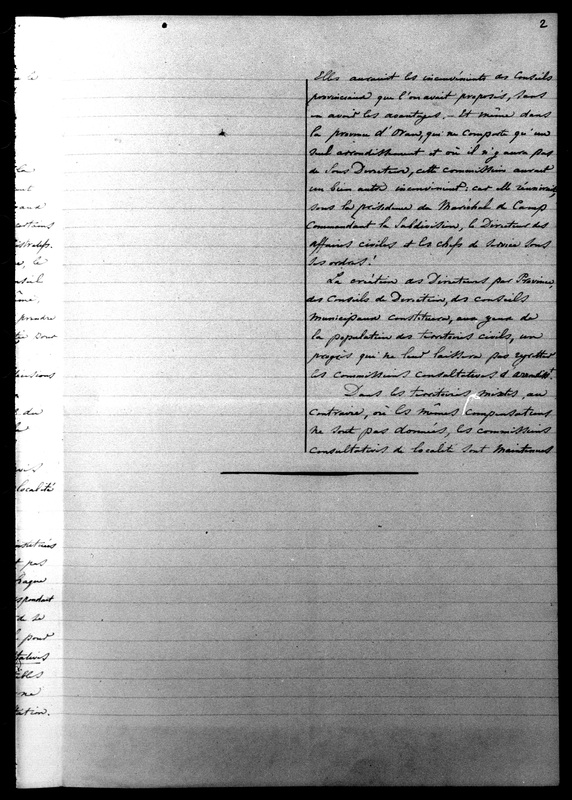 2
Elles auraient les inconvénients des Conseils
provinciaux que l'on avait proposés, sans
en avoir les avantages. – Et même dans
la province d'Oran, qui ne comporte qu'un
seul arrondissement et où il n'y aura pas
de Sous Directeur, cette commission aurait
un bien autre inconvénient: car elle réunirait,
sous la présidence du Maréchal de Camp
Commandant la Subdivision, le Directeur des
affaires civiles et les chefs de service sous
ses ordres!
La création des Directeurs par Province,
des Conseils de Direction, des conseils
municipaux constituera, aux yeux de
la population des territoires civils, un
progrès qui ne leur laissera pas regretter
les commissions consultatives d'arrondist.
Dans les territoires mixtes, au
contraire, où les mêmes compensations
ne sont pas données, les commissions
consultatives de localité sont maintenues
le
la
certains
le
prendre
du
localité
pas
chaque
de se
pour